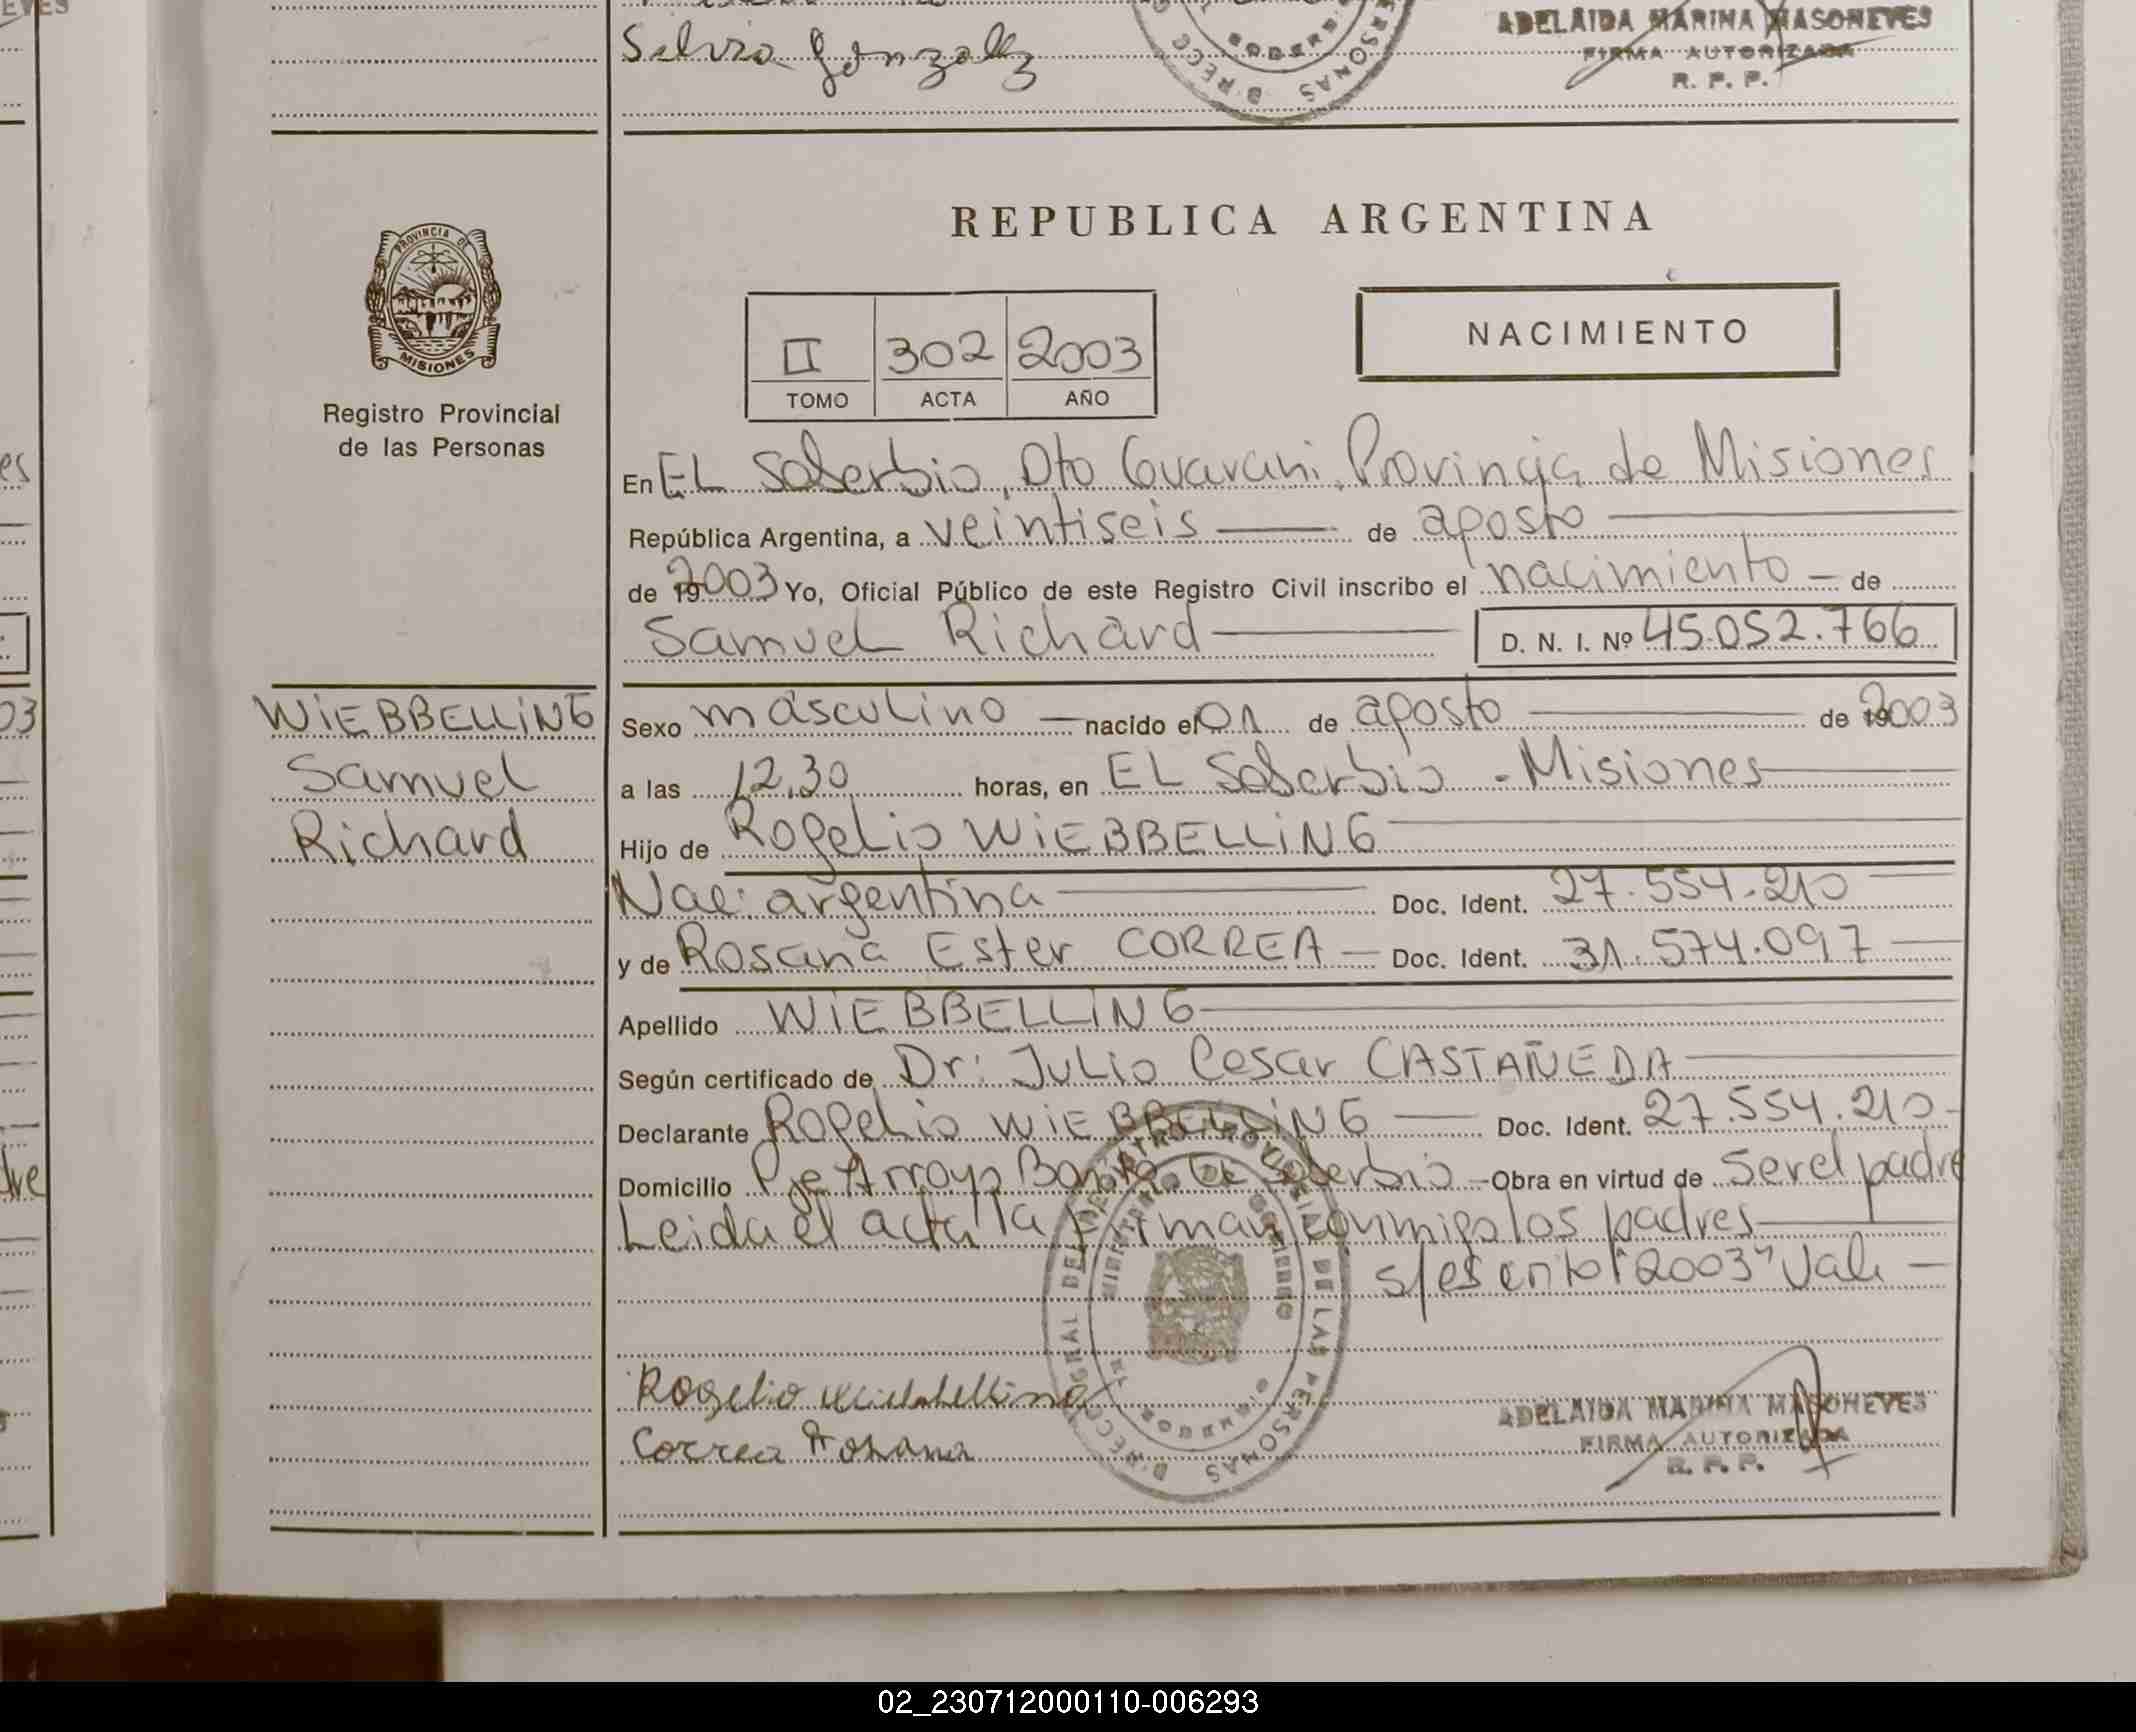 Silvia Gonzalez
ADELAIDA MARINA MASONEVES
FIRMA AUTORIZADA
R. P. P.
PROVINCIA DE
MISIONES
Registro Provincial
de las Personas
REPUBLICA ARGENTINA
II 302 2003
TOMO ACTA AÑO
NACIMIENTO
En EL Soberbio, Dto Guarani, Provincia de Misiones
República Argentina, a veintiseis de agosto
de 2003 Yo, Oficial Público de este Registro Civil inscribo el nacimiento de
Samuel Richard D. N. I. Nº 45.052.766
WiEBBELLiNG
Samuel
Richard
Sexo masculino nacido el 01 de agosto de 2003
a las 12,30 horas, en EL Soberbio - Misiones
Hijo de Rogelio WiEBBELLiNG
Nac: argentina Doc. Ident. 27.554.210
y de Rosana Ester CORREA Doc. Ident. 31.574.097
Apellido WiEBBELLiNG
Según certificado de Dr: Julio Cesar CASTAÑEDA
Declarante Rogelio WiEBBELLiNG Doc. Ident. 27.554.210
Domicilio Pje Arroyo Bonito EL Soberbio Obra en virtud de ser el padre
Leida el acta la firman conmigo los padres
s/escrito "2003" Vale
Rogelio Wiebbelling
Correa Rosana
ADELAIDA MARINA MASONEVES
FIRMA AUTORIZADA
R. P. P.
02_230712000110-006293